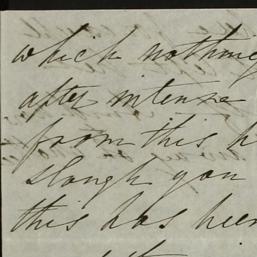 which nothing
after intense
from this h
slough you
this has been